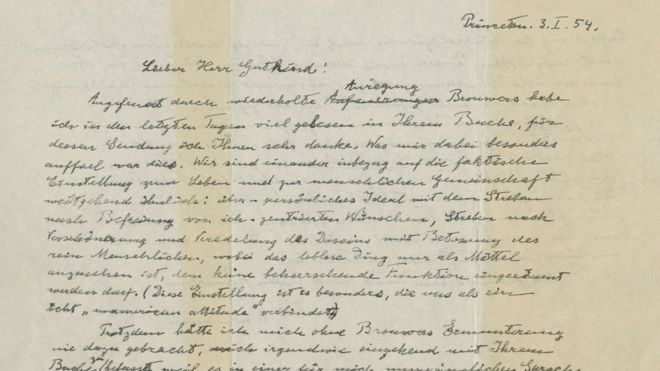 Princeton. 3. I. 54.
Lieber Herr Gutkind!
Anregung
Angefeuert durch wiederholte Brouwers habe
ich in den letzten Tagen viel gelesen in Ihrem Buche, für
dessen Sendung ich Ihnen sehr danke. Was mir dabei besonders
auffiel war dies. Wir sind einander inbezug auf die faktische
Einstellung zum Leben und zur menschlichen Gemeinschaft
weitgehend ähnlich: über-persönliches Ideal mit dem Streben
nach Befreiung von ich-zentrierten Wünschen, Streben nach
Verschönerung und Veredelung des Daseins mit Betonung des
rein Menschlichen, wobei das leblose Ding nur als Mittel
anzusehen ist, dem keine beherrschende Funktion eingeräumt
werden darf. (Diese Einstellung ist es besonders, die uns als ein
echt „unamerican attitude" verbindet)
Trotzdem hätte ich mich ohne Brouwers Ermunterung
nie dazu gebracht, mich irgendwie eingehend mit Ihrem
weil es in einer für mich